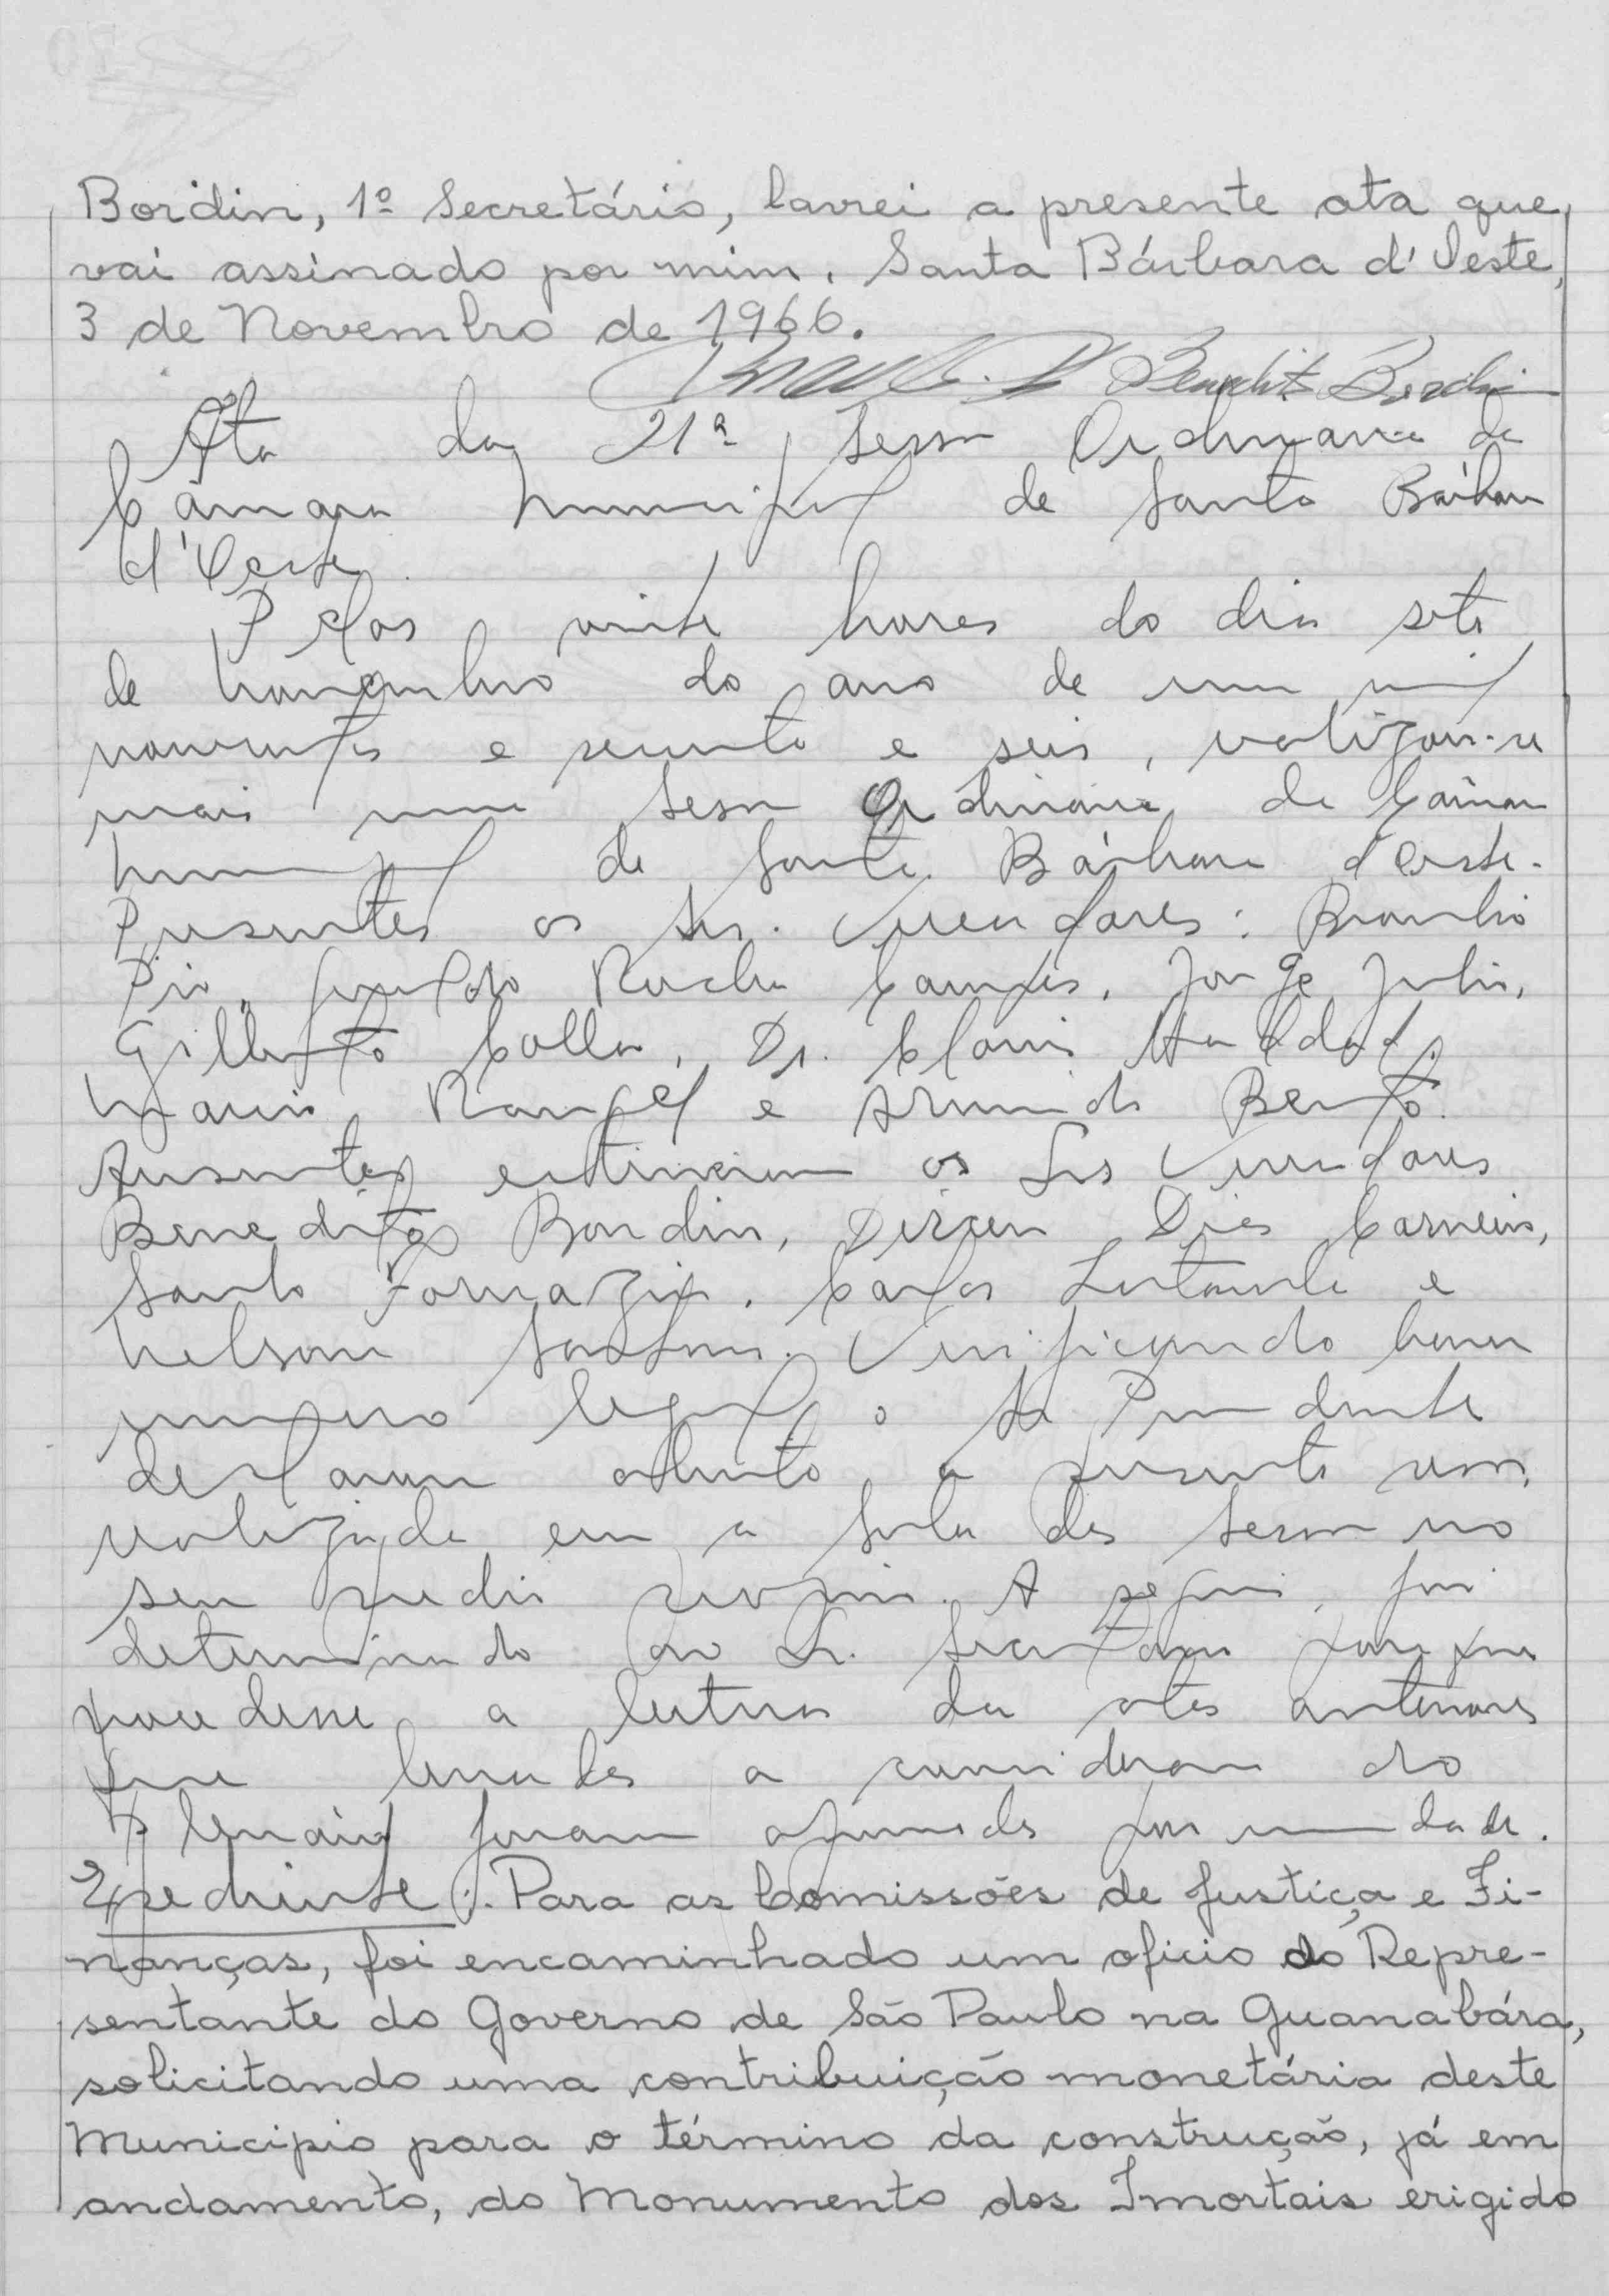 Bordin, 1º Secretário, lavrei a presente ata que
vai assinado por mim. Santa Bárbara d'Oeste,
3 de Novembro de 1966.
Benedito Bordin
Ata da 21ª Sessão Ordinaria da
Câmara Municipal de Santa Bárbara
d'Oeste.
Pelas vinte horas do dia sete
de novembro do ano de um mil
novecentos e sessenta e seis, realizou-se
mais uma Sessão Ordinária da Câmara
Municipal de Santa Bárbara d'Oeste.
Presentes os Srs. Vereadores: Braulio
Pio, Rocha Campos, Jorge Julio,
Gilberto Colla, Dr. Clovis
Mario Rangel e Armindo Bento.
Ausentes estiveram os Srs Vereadores
Benedito Bordin, Dirceu Dias Carneiro,
Santo Fornazin, Carlos e
Nelson Verificando haver
numero legal o Sr. Presidente
declarou aberta a presente sessão,
realizada em a Sala das Sessões no
seu predio proprio. A seguir, foi
determinado ao Sr. Secretario para que
procedesse a leitura das atas anteriores
que levadas a consideração do
Plenário foram aprovadas por unanimidade.
Expediente: Para as Comissões de Justiça e Fi-
nanças, foi encaminhado um oficio do Repre-
sentante do Governo de São Paulo na Guanabára,
solicitando uma contribuição monetária deste
Municipio para o término da construção, já em
andamento, do Monumento dos Imortais erigido